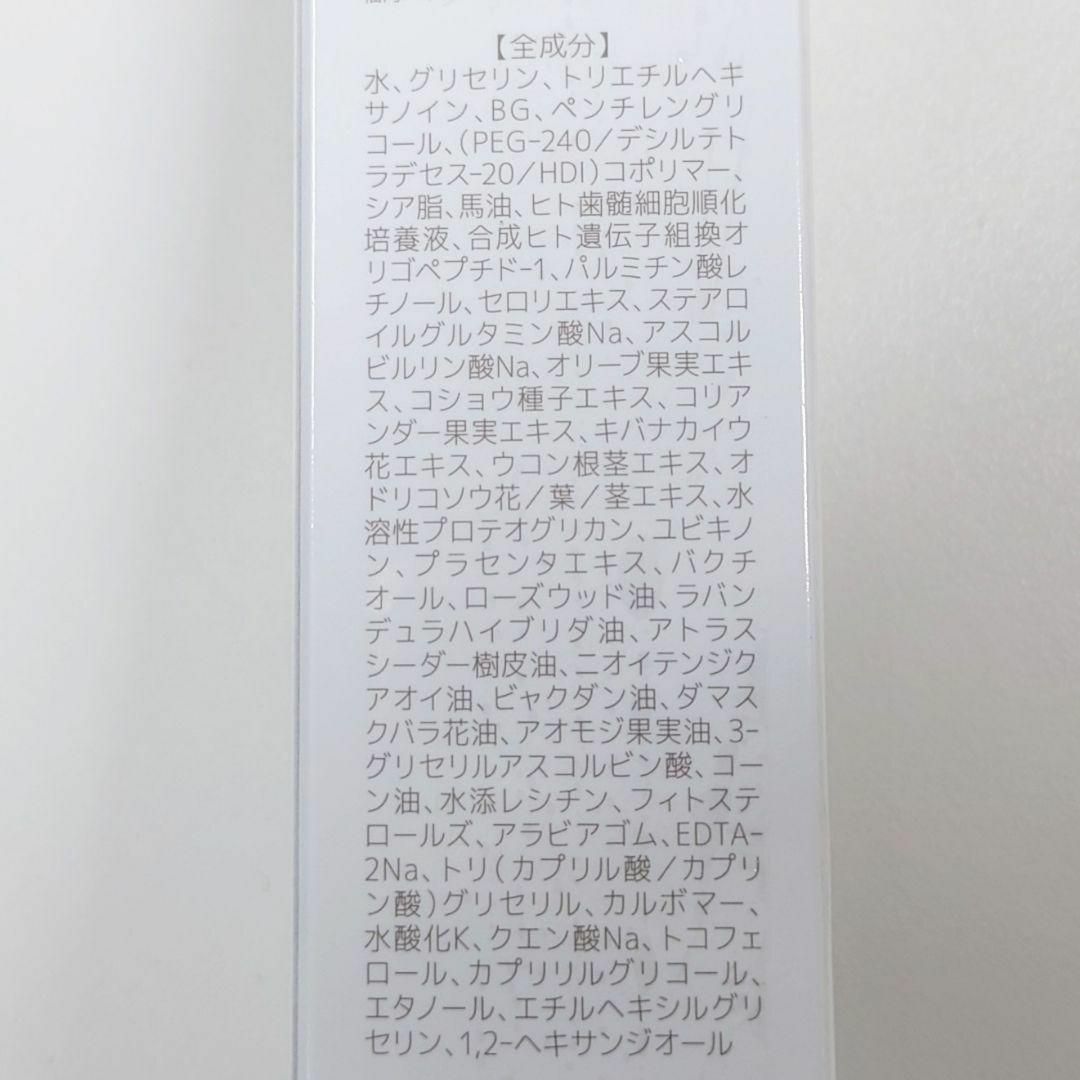 【全成分】
水、グリセリン、トリエチルヘキ
サノイン、BG、ペンチレングリ
コール、(PEG-240/デシルテト
ラデセス-20/HDI)コポリマー、
シア脂、馬油、ヒト歯髄細胞順化
培養液、合成ヒト遺伝子組換オ
リゴペプチド-1、パルミチン酸レ
チノール、セロリエキス、ステアロ
イルグルタミン酸Na、アスコル
ビルリン酸Na、オリーブ果実エキ
ス、コショウ種子エキス、コリア
ンダー果実エキス、キバナカイウ
花エキス、ウコン根茎エキス、オ
ドリコソウ花/葉/茎エキス、水
溶性プロテオグリカン、ユビキノ
ン、プラセンタエキス、バクチ
オール、ローズウッド油、ラバン
デュラハイブリダ油、アトラス
シーダー樹皮油、ニオイテンジク
アオイ油、ビャクダン油、ダマス
クバラ花油、アオモジ果実油、3-
グリセリルアスコルビン酸、コー
ン油、水添レシチン、フィトステ
ロールズ、アラビアゴム、EDTA-
2Na、トリ(カプリル酸/カプリ
ン酸)グリセリル、カルボマー、
水酸化K、クエン酸Na、トコフェ
ロール、カプリリルグリコール、
エタノール、エチルヘキシルグリ
セリン、1,2-ヘキサンジオール